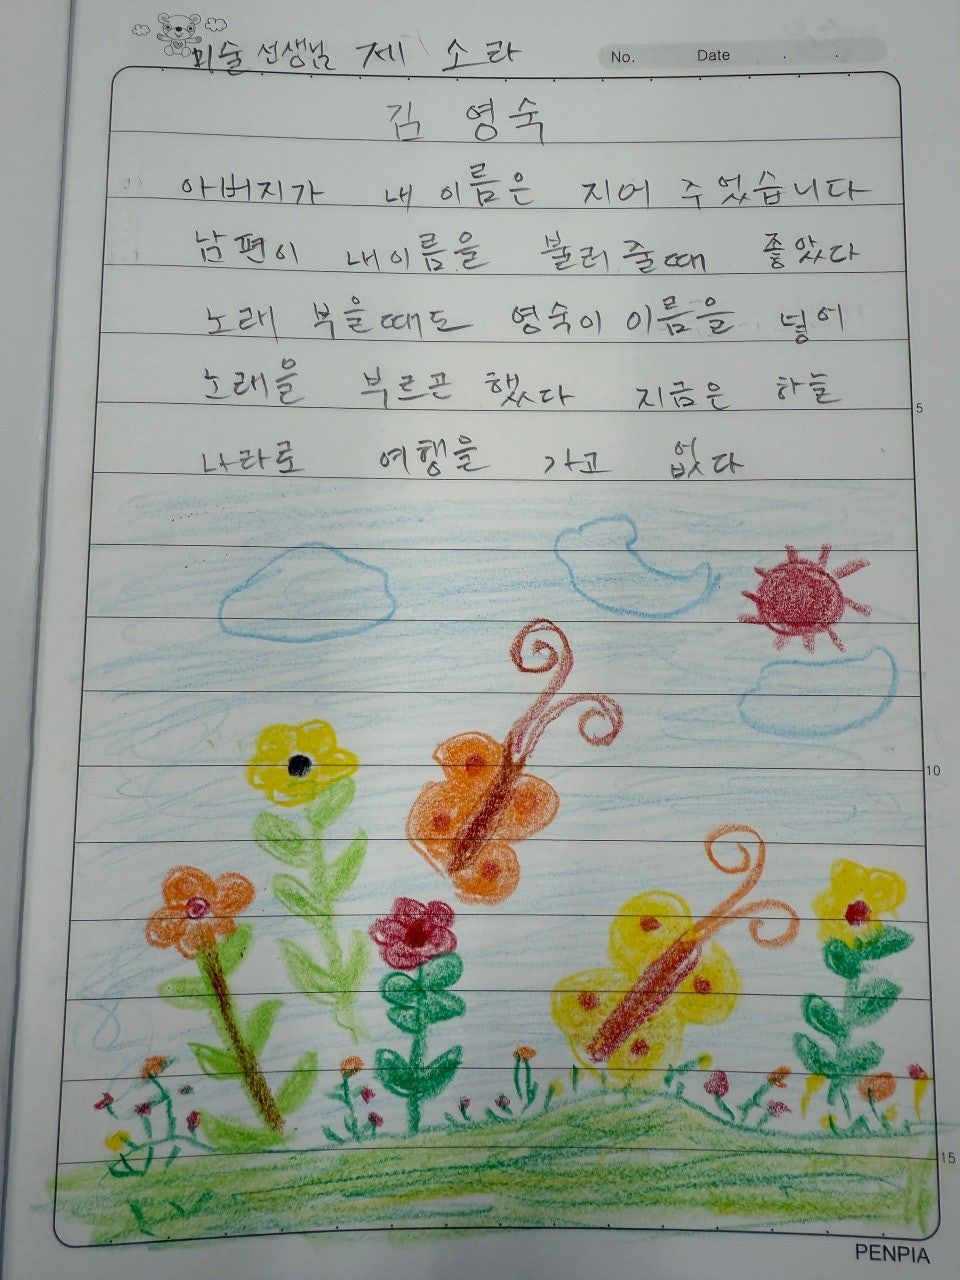 미술 선생님 제 소라
No. Date
김 영숙
아버지가 내 이름은 지어 주었습니다
남편이 내이름을 불러 줄때 좋았다
노래 부을때도 영숙이 이름을 넣어
노래를 부르곤 했다 지금은 하늘
나라로 여행을 가고 없다
5
10
15
PENPIA